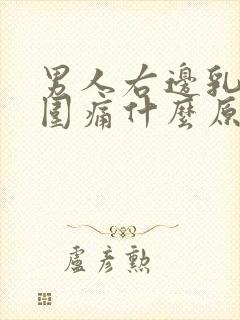 男人右邊乳
圍痛什麼原
盧彥勲